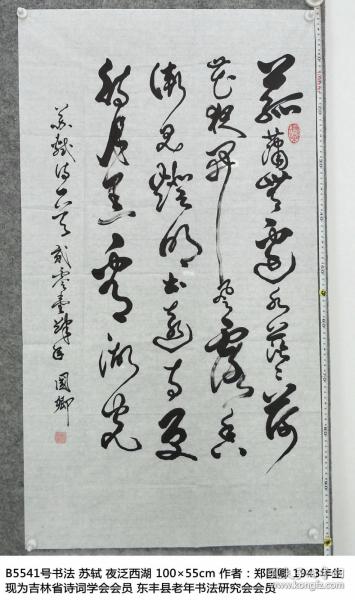 菰蒲無邊水茫〻荷
花夜開風露香
漸見燈明出遠寺更
待月黑看湖光
蘇軾詩一首 貳零壹肆年 國卿
B5541号书法 苏轼 夜泛西湖 100×55cm 作者：郑国卿 1943年生
现为吉林省诗词学会会员 东丰县老年书法研究会会员